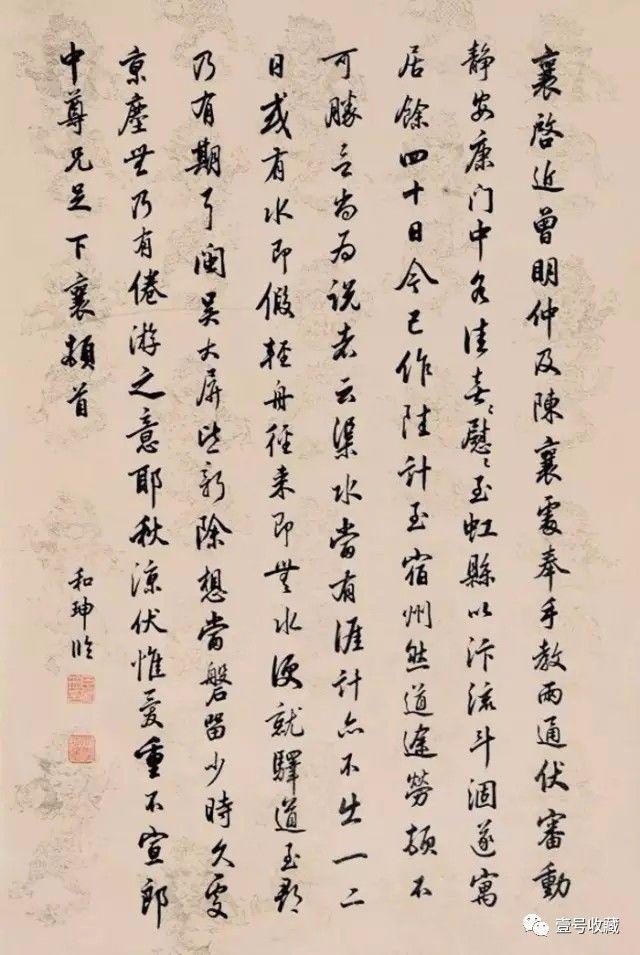 襄啓近曾明仲及陳襄處奉手教兩通伏審動
静安康门中各佳喜〻慰〻至虹縣以汴流斗涸遂寓
居餘四十日今已作陸計至宿州然道途勞頓不
可勝言尚为说者云渠水當有涯計亦不出一二
日或有水即假輕舟徑来即無水便就驛道至都
乃有期耳闽吴大屏些新除想當磐留少時久雯
京塵無乃有倦游之意耶秋涼伏惟愛重不宣郎
中尊兄足下襄頓首
和珅临
壹号收藏